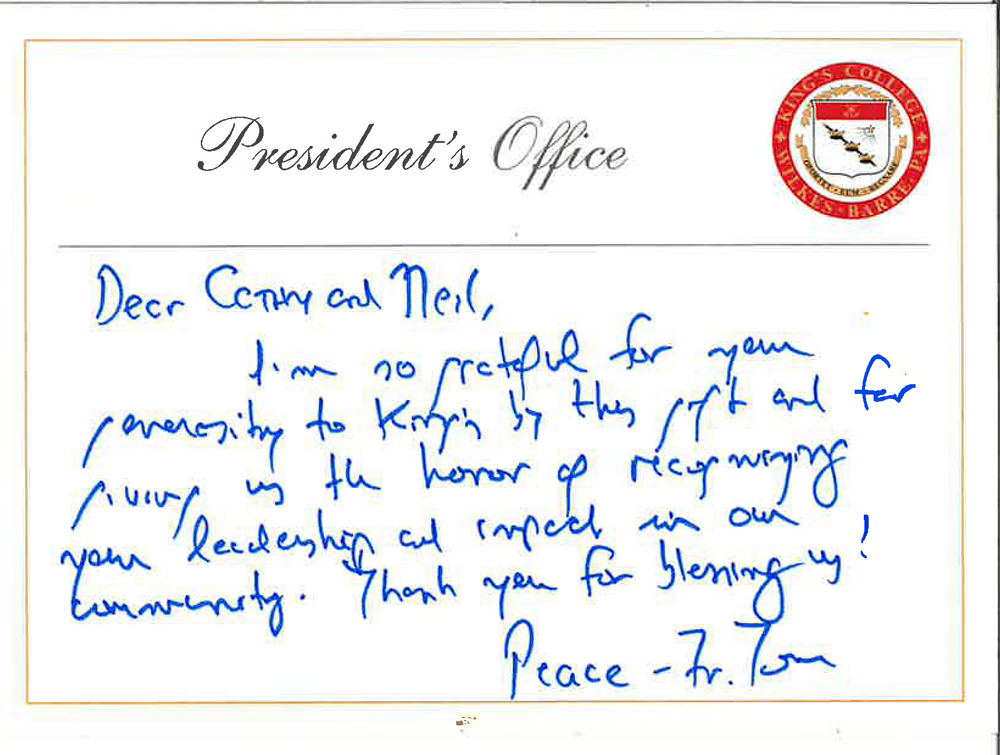 President's Office
KING'S COLLEGE
WILKES-BARRE, PA
OPORTET · EUM · REGNARE
Dear Cathy and Neil,
I'm so grateful for your
generosity to King's by this gift and for
giving us the honor of recognizing
your leadership and impact in our
community. Thank you for blessing us!
Peace - Fr. Tom